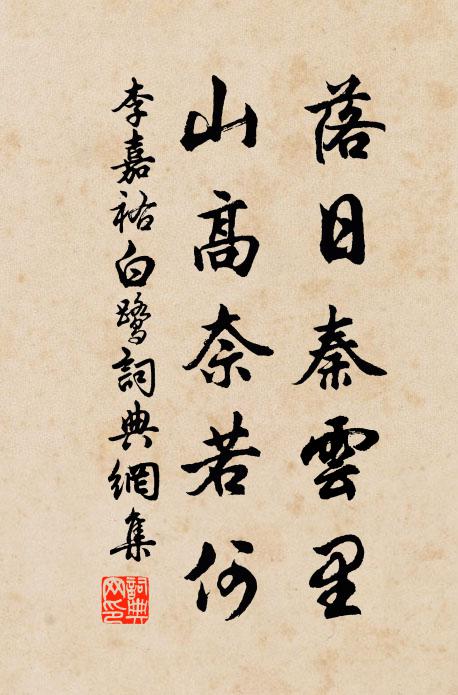 落日秦雲里
山高奈若何
李嘉祐白鷺詞典網集
詞典網印